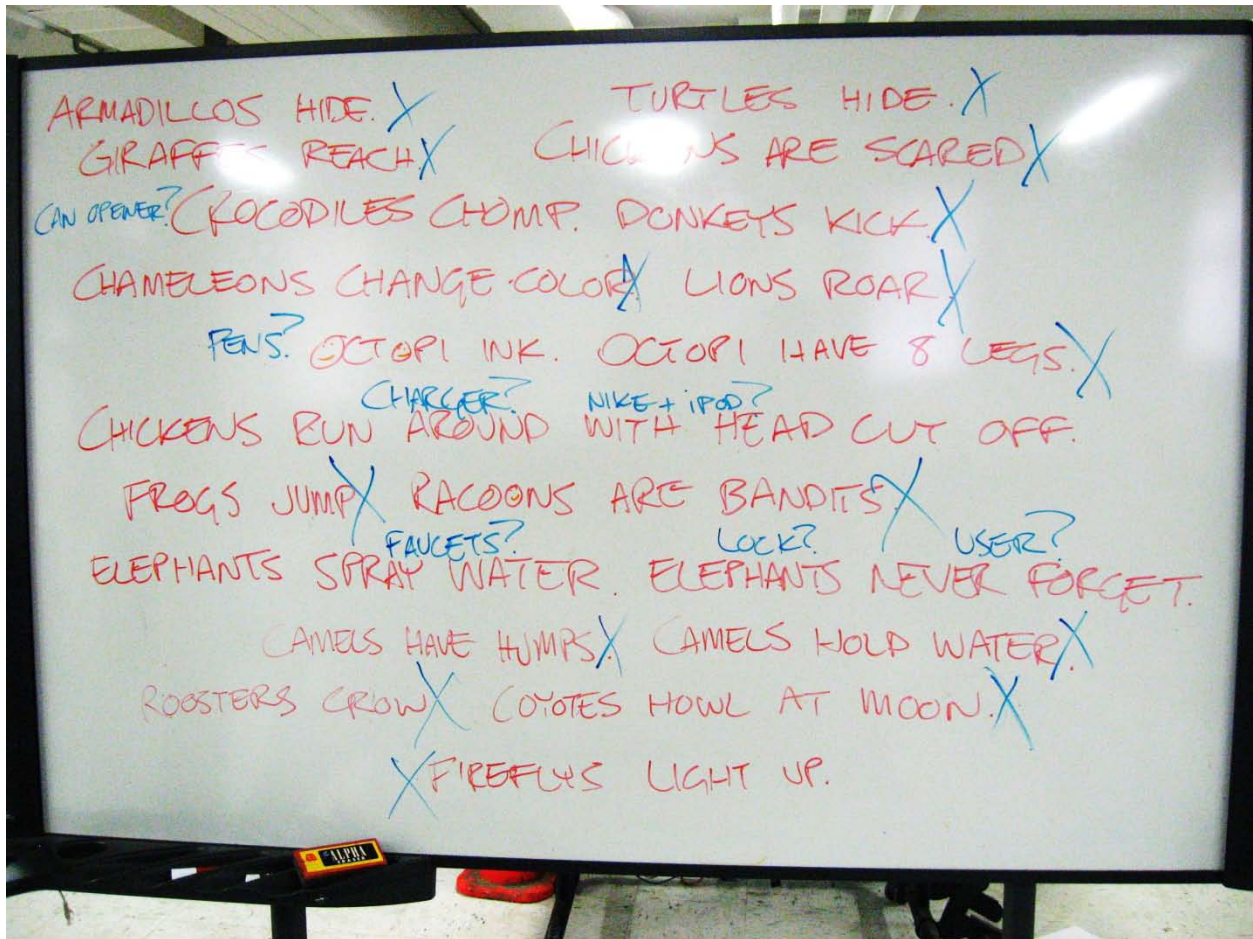 ARMADILLOS HIDE. X TURTLES HIDE. X
GIRAFFES REACH. X CHICKENS ARE SCARED X
CAN OPENER? CROCODILES CHOMP. DONKEYS KICK. X
CHAMELEONS CHANGE COLOR. X LIONS ROAR X
PENS? OCTOPI INK. OCTOPI HAVE 8 LEGS. X
CHARGER? NIKE + iPOD?
CHICKENS RUN AROUND WITH HEAD CUT OFF.
FROGS JUMP X RACOONS ARE BANDITS. X
FAUCETS? LOCK? USER?
ELEPHANTS SPRAY WATER. ELEPHANTS NEVER FORGET.
CAMELS HAVE HUMPS. X CAMELS HOLD WATER. X
ROOSTERS CROW X COYOTES HOWL AT MOON. X
X FIREFLYS LIGHT UP.
ALPHA